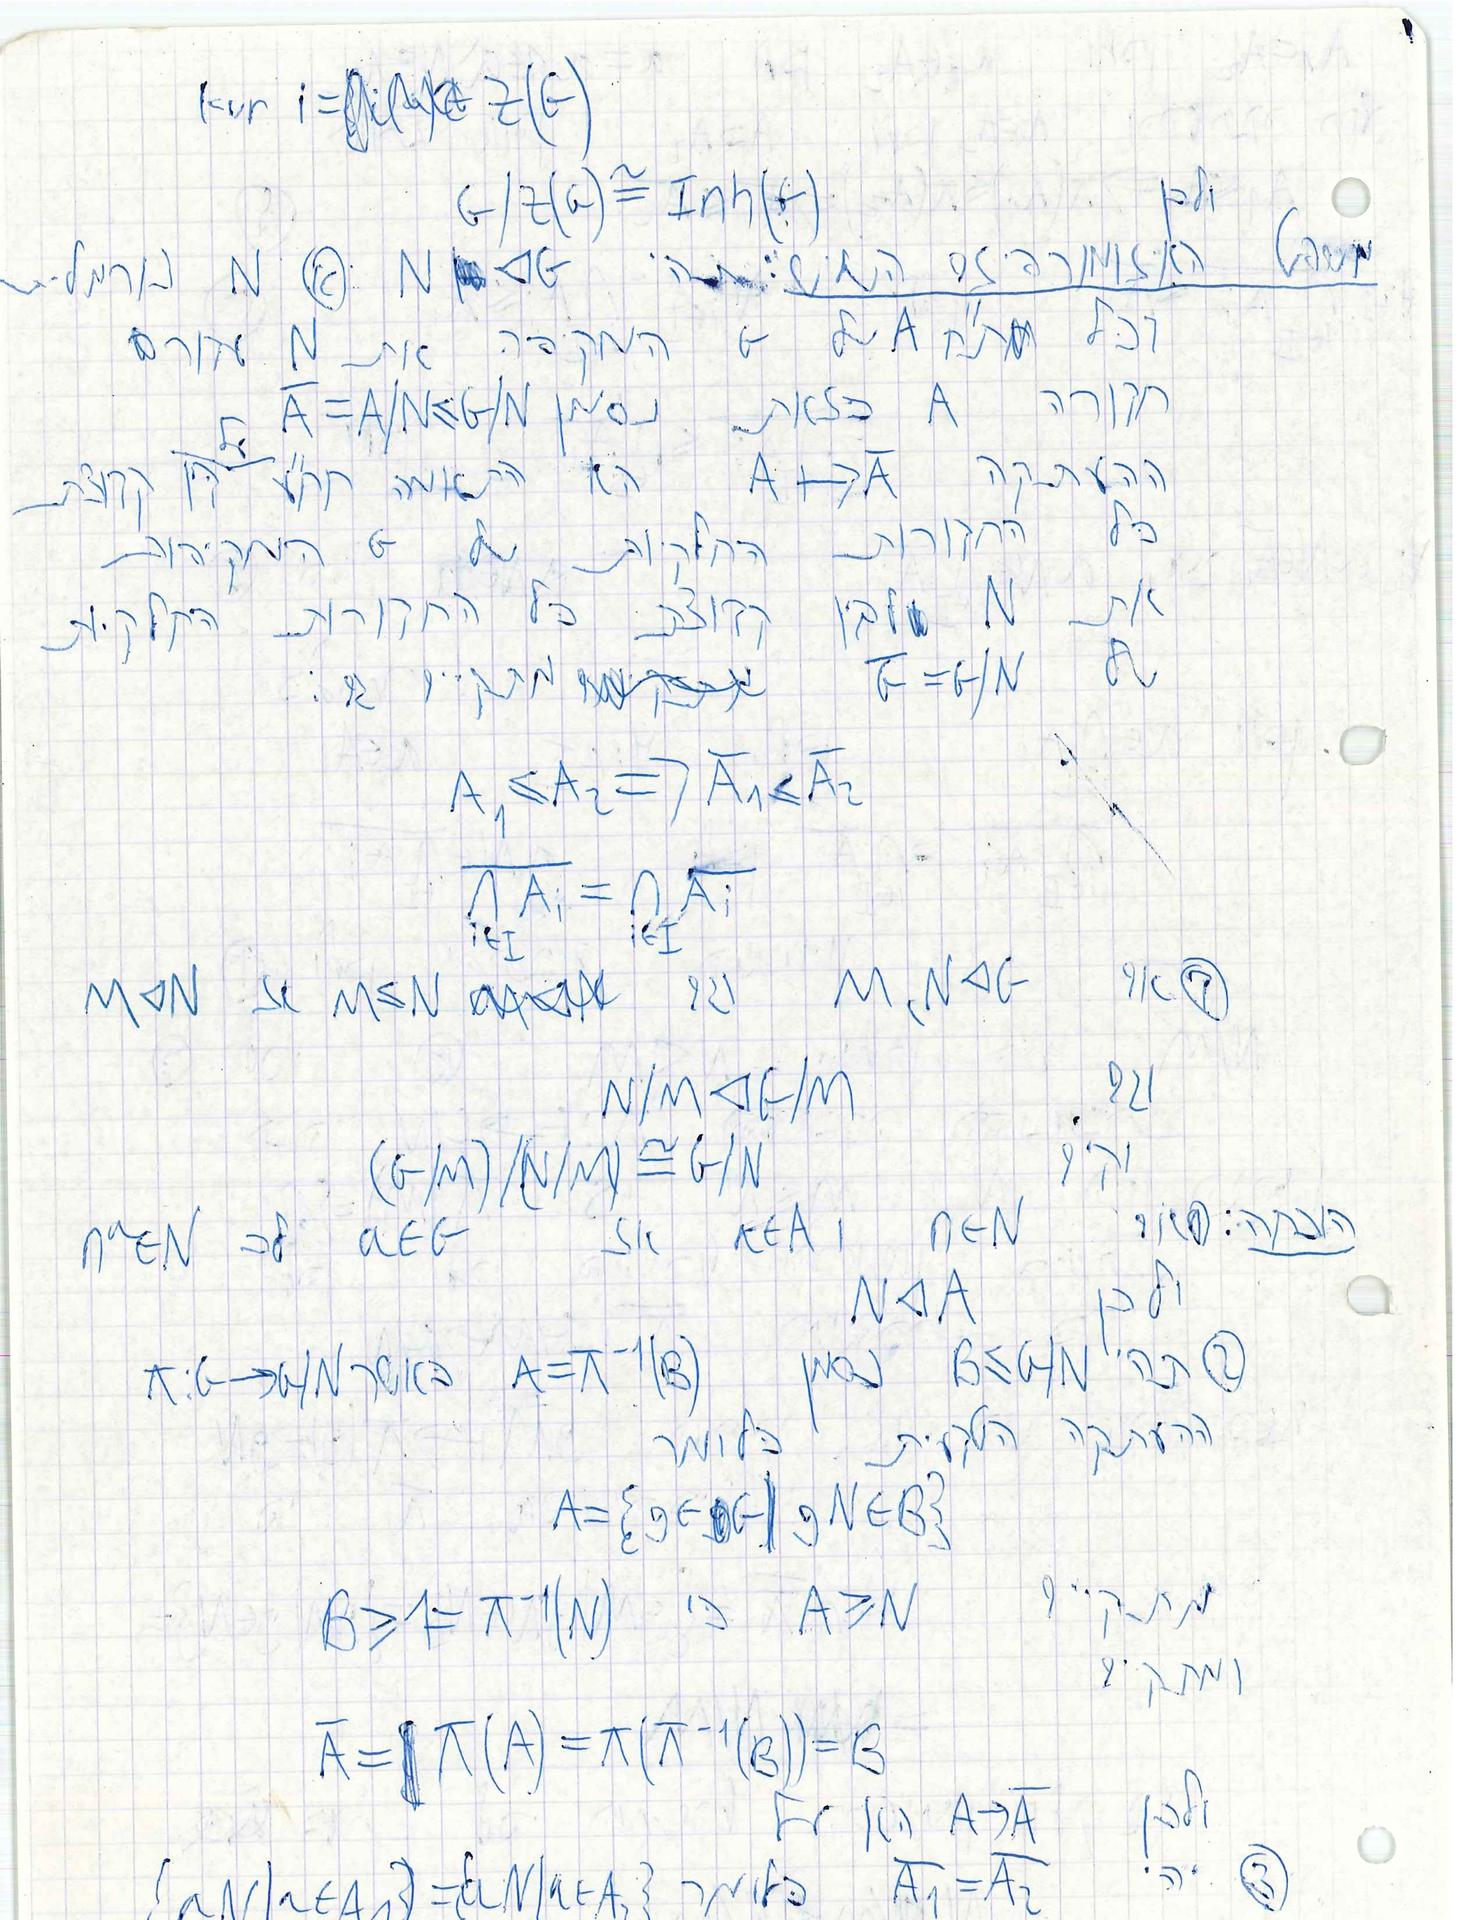 ker i = Z(G)
ולכן G/Z(G) ≅ Inn(G)
משפט האיזומורפיזם השלישי: תהי N ⊲ G א N נורמלית
בכל תת"ח A של G המקיפה את N עורם
חבורה A כזאת נסמן Ā = A/N ≤ G/N
ההעתקה A ↦ Ā היא התאמה חח"ע ועל בין קבוצת
כל החבורות החלקיות של G המקיפות
את N לבין קבוצת כל החבורות החלקיות
של Ḡ = G/N מתקיים גם:
A₁ ≤ A₂ ⇒ Ā₁ ≤ Ā₂
\overline{⋂_{i∈I} A_i} = ⋂_{i∈I} \overline{A_i}
ב אם M, N ⊲ G וגם M ≤ N אז M ⊲ N
וגם N/M ⊲ G/M
וקיים (G/M)/(N/M) ≅ G/N
הוכחה: אם n∈N ו a∈A אז a∈G לכן n^a∈N
ולכן N ⊲ A
2 תהי B ≤ G/N נסמן A = π⁻¹(B) כאשר π: G→G/N
ההעתקה הטבעית כלומר
A = {g∈G | gN∈B}
מתקיים A ≥ N כי B ≥ 1 = π⁻¹(N)
ומתקיים
Ā = π(A) = π(π⁻¹(B)) = B
ולכן A→Ā היא על
3 יהי Ā₁ = Ā₂ כלומר {aN | a∈A₁} = {aN | a∈A₂}